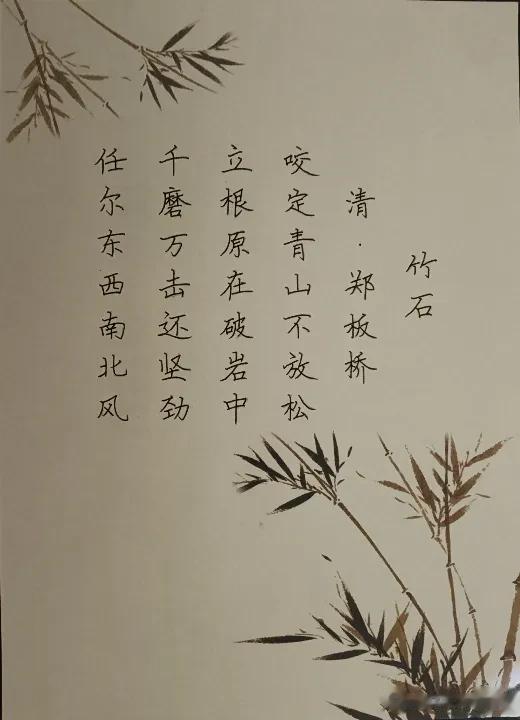 竹石
清·郑板桥
咬定青山不放松
立根原在破岩中
千磨万击还坚劲
任尔东西南北风